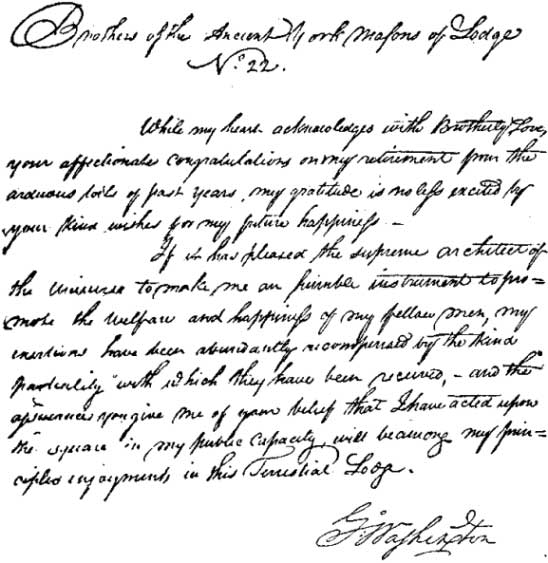 Brothers of the Ancient York Masons of Lodge
No. 22.
While my heart acknowledges with Brotherly Love,
your affectionate congratulations on my retirement from the
arduous toils of past years, my gratitude is no less excited by
your kind wishes for my future happiness –
If it has pleased the supreme architect of
the Universe to make me an humble instrument to pro=
mote the welfare and happiness of my fellow men, my
exertions have been abundantly recompensed by the kind
partiality with which they have been received, – and the
assurances you give me of your belief that I have acted upon
the square in my public Capacity, will be among my prin=
cipled enjoyments in this Terrestial Lodge.
G:Washington